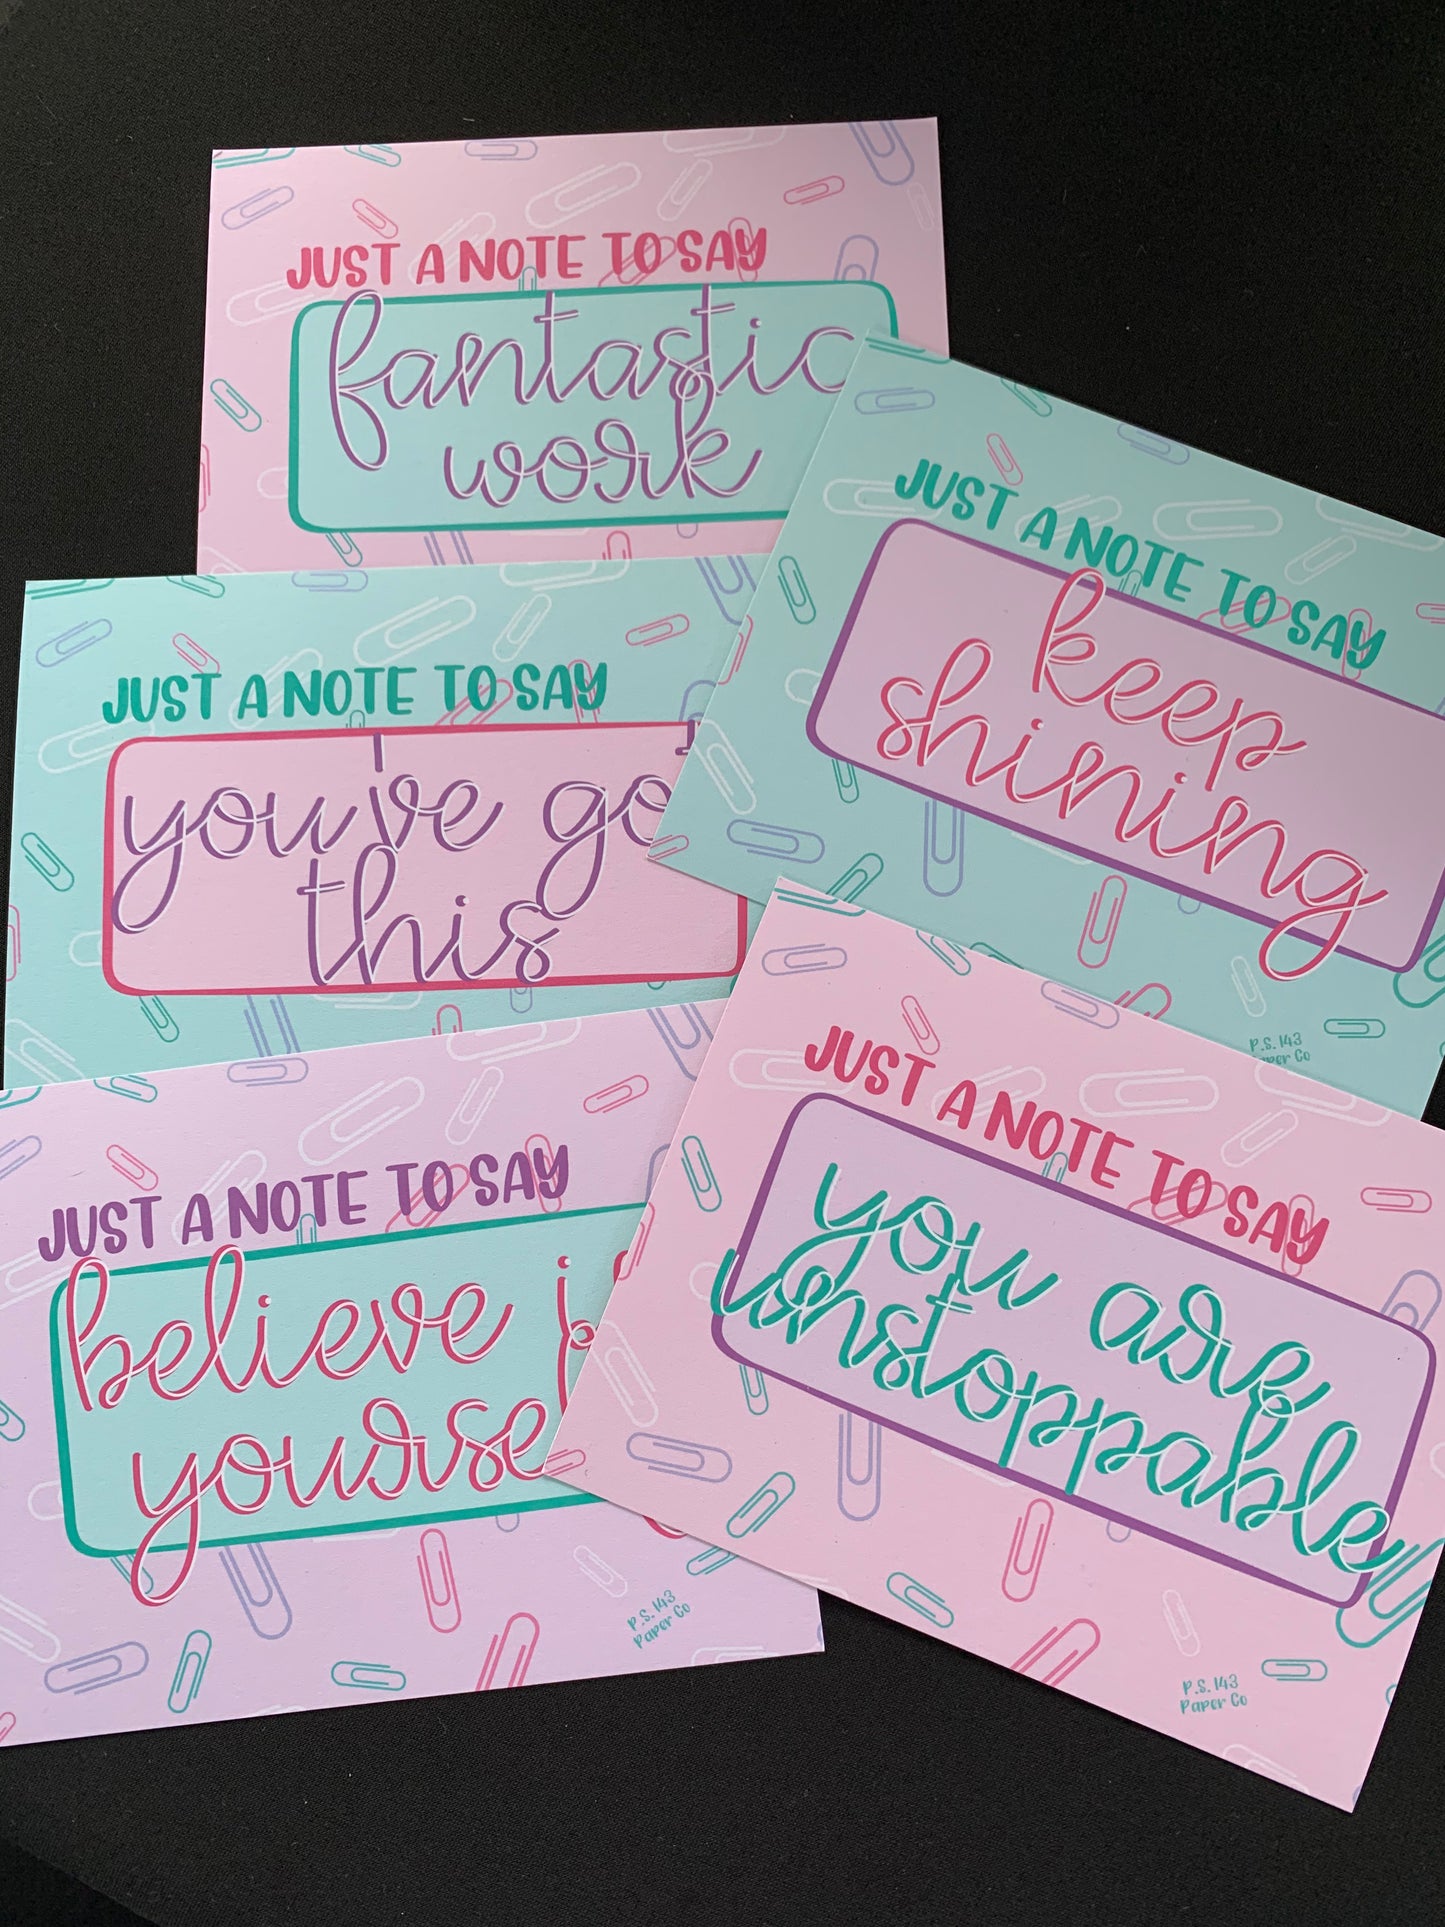 JUST A NOTE TO SAY
fantastic
work
JUST A NOTE TO SAY
keep
shining
P.S. 143
Paper Co
JUST A NOTE TO SAY
you've go
this
JUST A NOTE TO SAY
believe i
yourse
P.S. 143
Paper Co
JUST A NOTE TO SAY
you are
unstoppable
P.S. 143
Paper Co